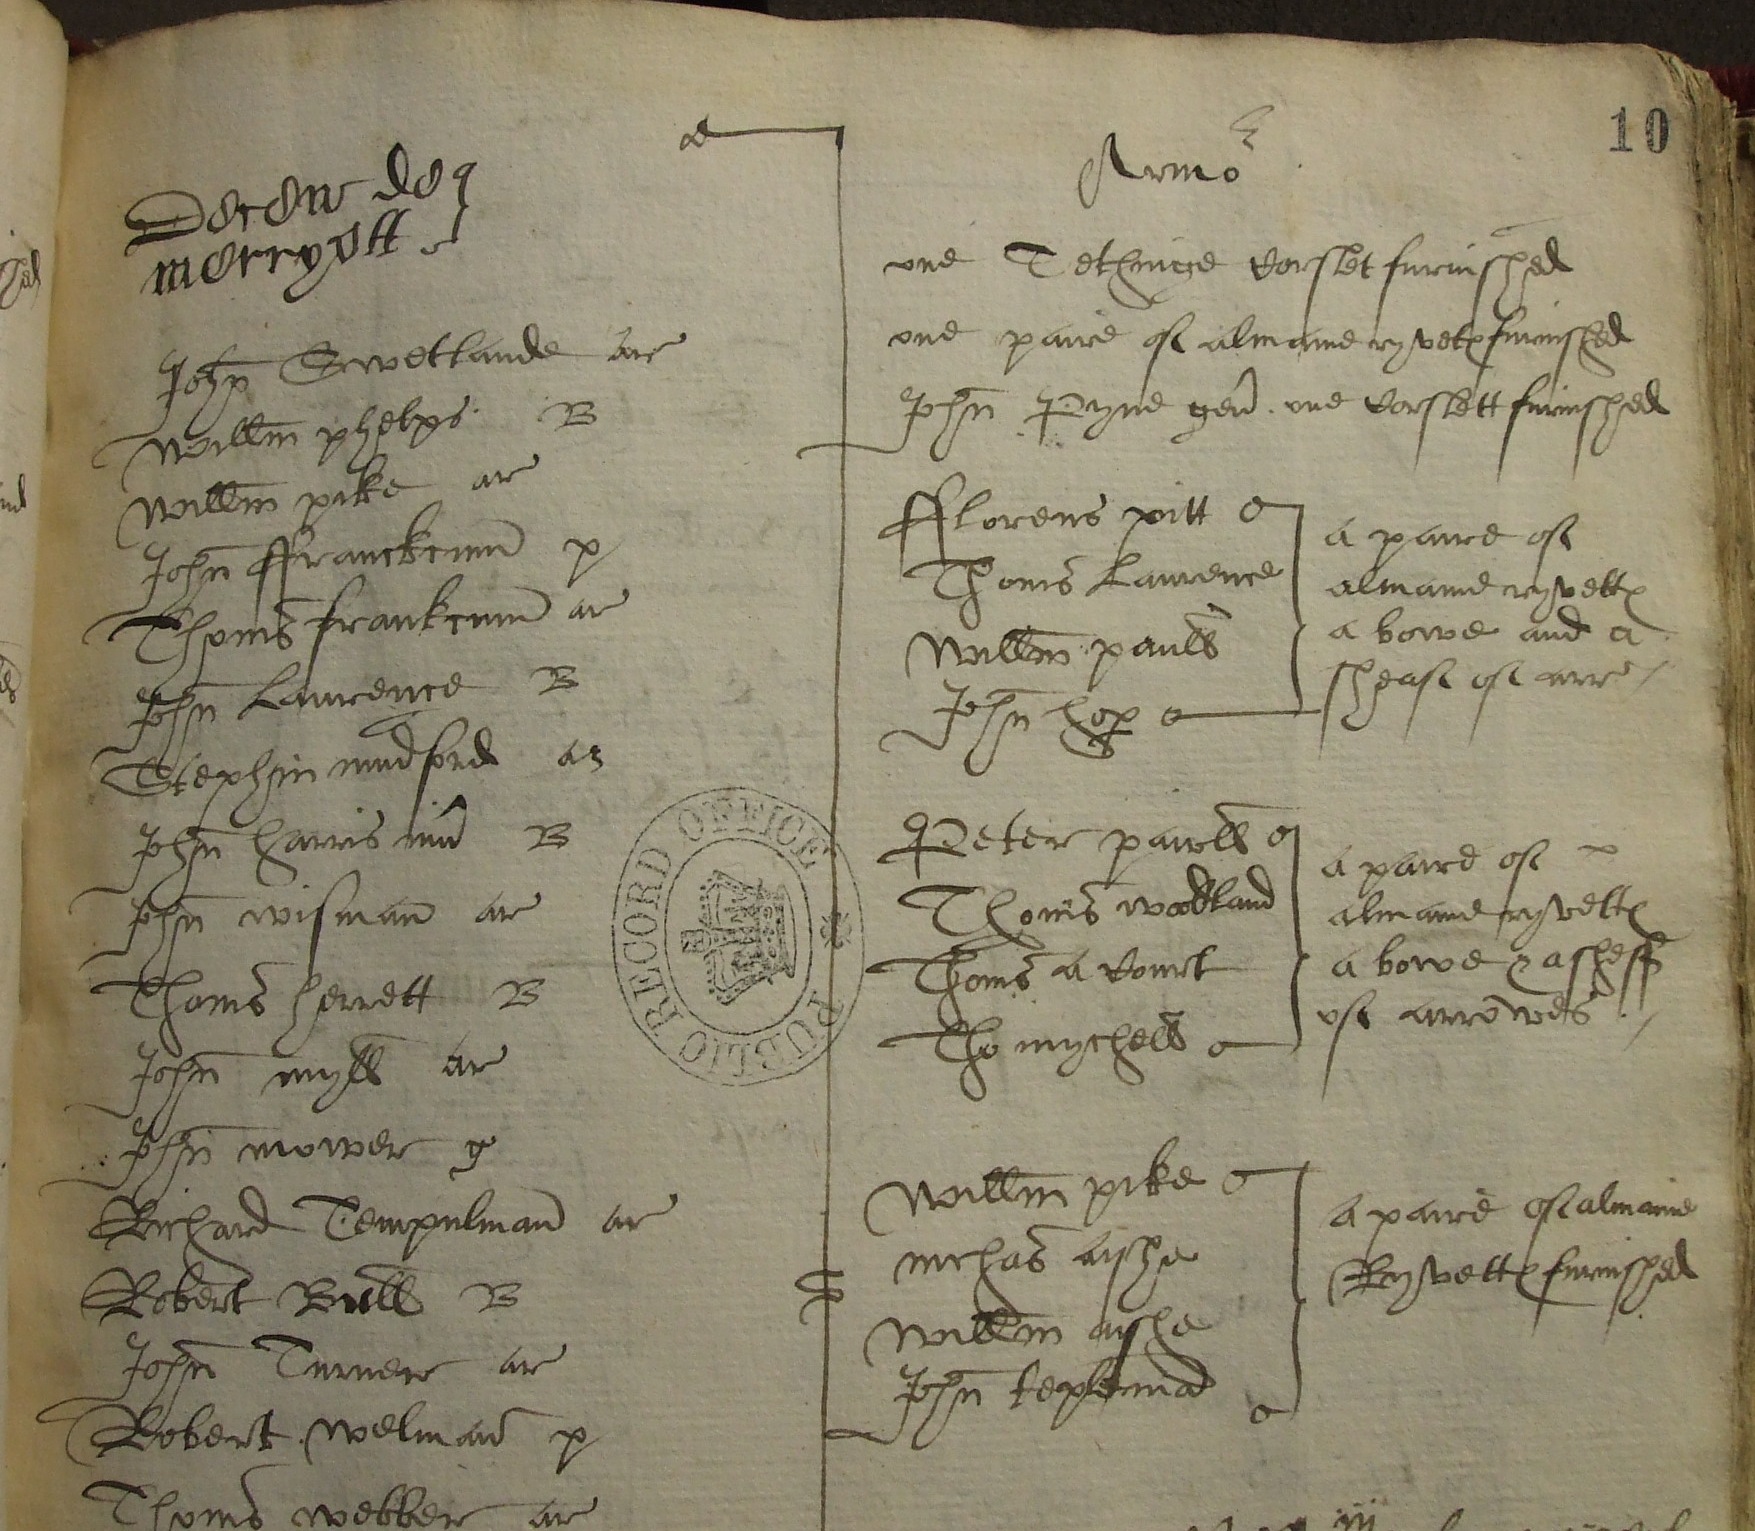 10
Decen de
merryott
John Swetlande ar
Willm phelps B
Willm pike ar
John ffranckcum p
Thoms frankcum ar
John Lawrence B
Stephin mudford ar
John harris B
John wisman ar
Thoms herrett B
John mylls ar
John mower g
Richard Tempulman ar
Robert Bulls B
John Turner ar
Robert welman p
Thoms webber ar
Armo
one Tethinge Corslet furnished
one paire of almaine ryvetes furnished
John Pyne gen one Corslett furnished
fflorens pitt
Thoms Lawrence
Willm pauls
John hop
a paire of
almaine ryvettes
a bowe and a
sheaf of arr
Peter pauls
Thoms woodland
Thoms a Court
Tho mychells
a paire of
almaine ryvettes
a bowe & a sheff
of arrowes
Willm pike
nichas aishe
Willm ayshe
John teplman
a paire of almaine
Ryvettes furnished
PUBLIC RECORD OFFICE